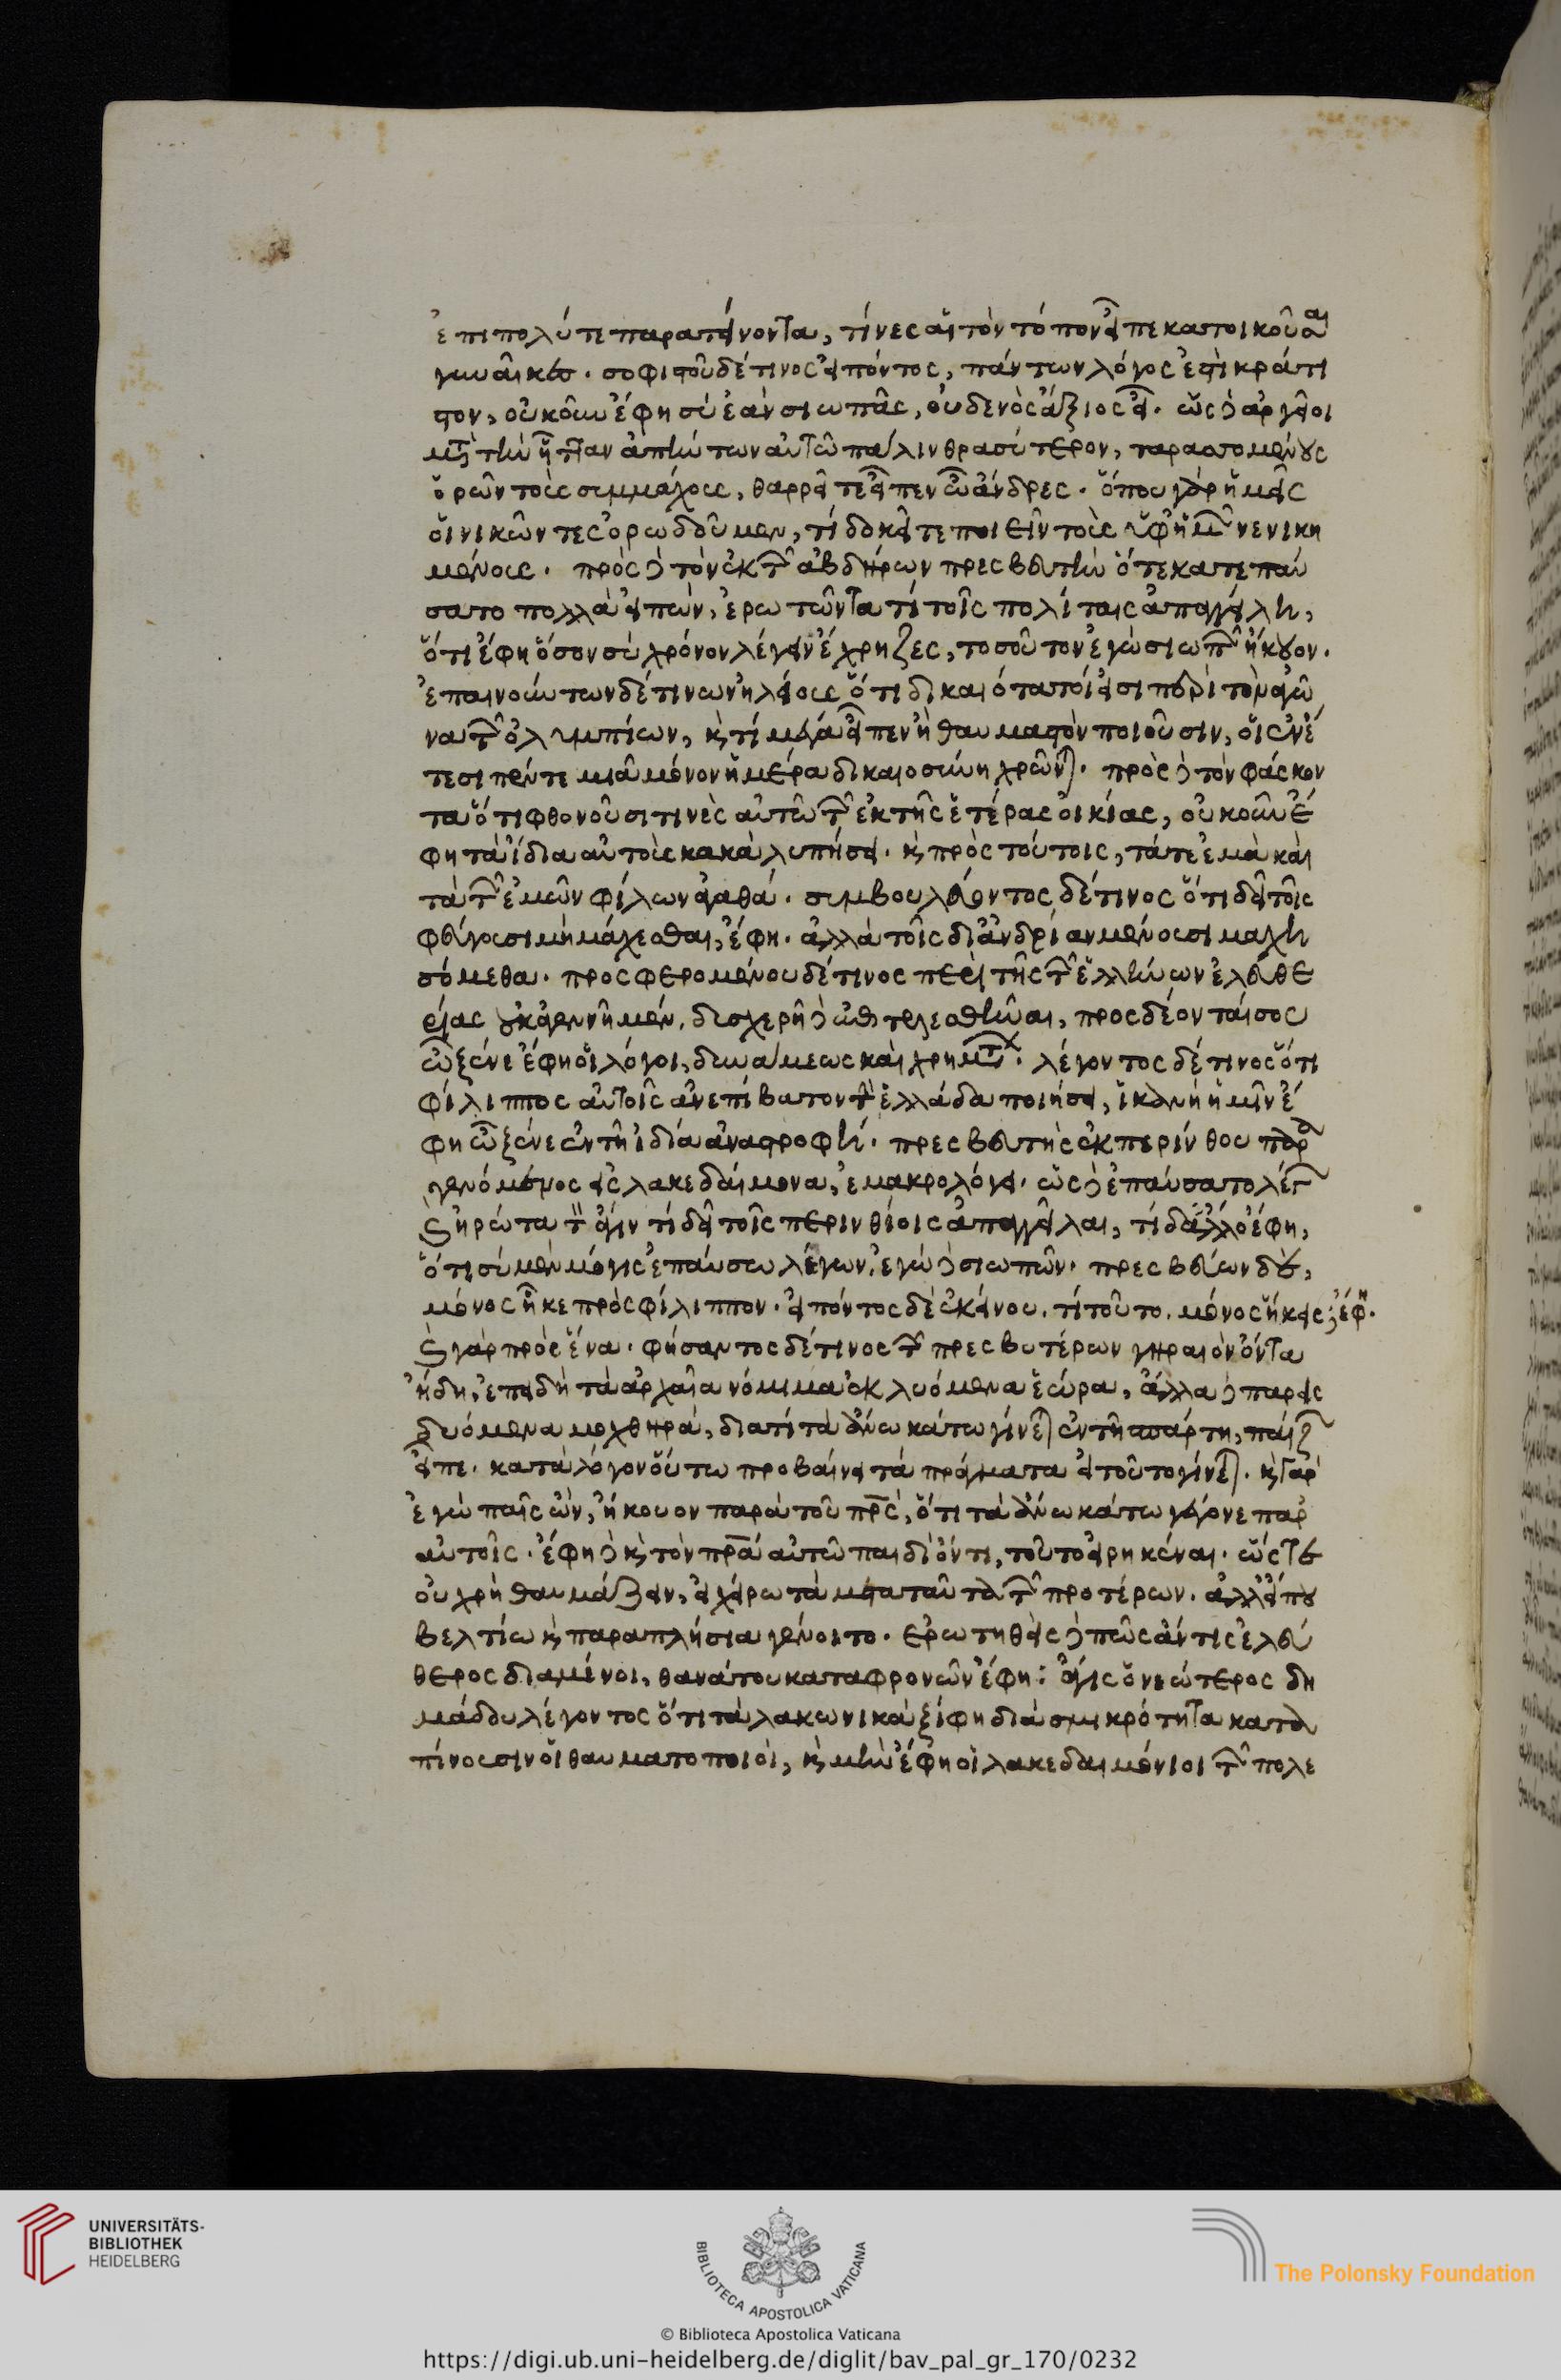 ἐπιπολύ τε παρατείνοντα, τίνες αὖ τὸν τόπον εἶπε κατοικοῦσαι
γυναῖκες. σοφιστοῦ δέ τινος εἰπόντος, πάντων λόγος ἐστὶ κράτι
στον, οὐκοῦν ἔφη σὺ ἐὰν σιωπᾷς, οὐδενὸς ἄξιος εἶ. ὡς δὲ ἀργεῖοι
μετὰ τὴν ἧτταν ἀπήντων αὐτῶ πάλιν θρασύτερον, ταραττομένους
ὁρῶν τοὺς συμμάχους, θαρρεῖτε εἶπεν ὦ ἄνδρες. ὅπου γὰρ ἡμεῖς
οἱ νικῶντες ὀρωδοῦμεν, τί δοκεῖτε ποιεῖν τοὺς ὑφ' ἡμῶν νενικη
μένους. πρὸς δὲ τὸν ἐκ τῶν ἀβδήρων πρεσβευτὴν ὅτε κατεπαύ
σατο πολλὰ εἰπών, ἐρωτῶντα τί τοῖς πολίταις ἀπαγγείλη,
ὅτι ἔφη ὅσον σὺ χρόνον λέγειν ἔχρηζες, τοσοῦτον ἐγὼ σιωπῶν ἤκουον.
ἐπαινούντων δέ τινων ἠλείους ὅτι δικαιότατοί εἰσι περὶ τὸν ἀγῶ
να τῶν ὀλυμπίων, καὶ τί μέγα εἶπεν ἢ θαυμαστὸν ποιοῦσιν, οἳ ἐν ἔ
τεσι πέντε μιᾶ μόνον ἡμέρα δικαιοσύνη χρῶνται. πρὸς δὲ τὸν φάσκον
τα ὅτι φθονοῦσι τινὲς αὐτῶ τῶν ἐκ τῆς ἑτέρας οἰκίας, οὐκοῦν ἔ
φη τὰ ἴδια αὐτοὺς κακὰ λυπήσει. καὶ πρὸς τούτοις, τά τε ἐμὰ καὶ
τὰ τῶν ἐμῶν φίλων ἀγαθά. συμβουλεύοντος δέ τινος ὅτι δεῖ τοῖς
φεύγουσι μὴ μάχεσθαι, ἔφη. ἀλλὰ τοῖς δι' ἀνδρίαν μένουσι μαχη
σόμεθα. προσφερομένου δέ τινος περὶ τῆς τῶν ἑλλήνων ἐλευθε
ρίας οὐκ ἀγεννῆ μέν, δυσχερῆ δὲ ἐπιτελεσθῆναι, προσδέονταί σου
ὦ ξένε ἔφη οἱ λόγοι, δυνάμεως καὶ χρημάτων. λέγοντος δέ τινος ὅτι
φίλιππος αὐτοῖς ἀνεπίβατον τὴν ἑλλάδα ποιήσει, ἱκανὴ ἡμῖν ἔ
φη ὦ ξένε ἐν τῆ ἰδία ἀναστροφή. πρεσβευτὴς ἐκ περίνθου παρα
γενόμενος εἰς λακεδαίμονα, ἐμακρολόγει. ὡς δὲ ἐπαύσατο λέγων
καὶ ἠρώτα τὸν ἄγιν τί δεῖ τοῖς περινθίοις ἀπαγγεῖλαι, τί δ' ἄλλο ἔφη,
ὅτι σὺ μὲν μόγις ἐπαύσω λέγων, ἐγὼ δὲ σιωπῶν. πρεσβεύων δὲ,
μόνος ἧκε πρὸς φίλιππον. εἰπόντος δὲ ἐκείνου. τί τοῦτο. μόνος ἥκεις; ἔφη.
καὶ γὰρ πρὸς ἕνα. φήσαντος δέ τινος τῶν πρεσβυτέρων γηραιὸν ὄντα
ἤδη, ἐπειδὴ τὰ ἀρχαῖα νόμιμα ἐκλυόμενα ἑώρα, ἄλλα δὲ παρεις
δυόμενα μοχθηρά, διατί τὰ ἄνω κάτω γίνεται ἐν τῆ σπάρτη, παίζων
εἶπε. κατὰ λόγον οὕτω προβαίνει τὰ πράγματα εἰ τοῦτο γίνεται. καὶ γὰρ
ἐγὼ παῖς ὢν, ἤκουον παρὰ τοῦ πρς, ὅτι τὰ ἄνω κάτω γέγονε παρ'
αὐτοῖς. ἔφη δὲ καὶ τὸν πρα αὐτῶ παιδὶ ὄντι, τοῦτο εἰρηκέναι. ὥστε
οὐ χρὴ θαυμάζειν, εἰ χείρω τὰ μετὰ ταῦτα τῶν προτέρων. ἀλλ' εἴ που
βελτίω καὶ παραπλήσια γένοιτο. ἐρωτηθεὶς δὲ πῶς ἄν τις ἐλεύ
θερος διαμένοι, θανάτου καταφρονῶν ἔφη: ἆγις ὁ νεώτερος δη
μάδου λέγοντος ὅτι τὰ λακωνικὰ ξίφη διὰ σμικρότητα κατα
πίνουσιν οἱ θαυματοποιοὶ, καὶ μὴν ἔφη οἱ λακεδαιμόνιοι τῶν πολε
UNIVERSITÄTS-
BIBLIOTHEK
HEIDELBERG
BIBLIOTECA APOSTOLICA VATICANA
The Polonsky Foundation
© Biblioteca Apostolica Vaticana
https://digi.ub.uni-heidelberg.de/diglit/bav_pal_gr_170/0232